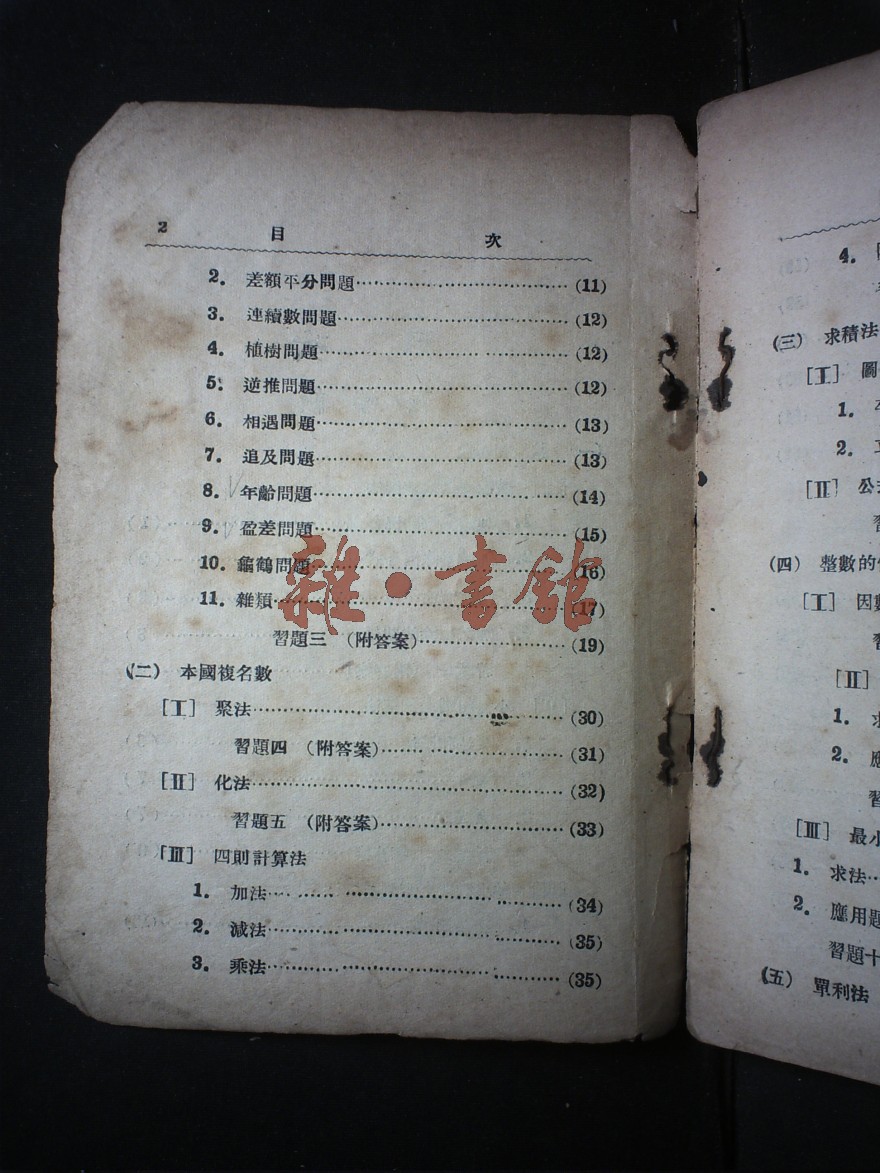 2 目 次
2. 差額平分問題 (11)
3. 連續數問題 (12)
4. 植樹問題 (12)
5. 逆推問題 (12)
6. 相遇問題 (13)
7. 追及問題 (13)
8. 年齡問題 (14)
9. 盈差問題 (15)
10. 龜鶴問題 (16)
11. 雜類 (17)
習題三 (附答案) (19)
(二) 本國複名數
[Ⅰ] 聚法 (30)
習題四 (附答案) (31)
[Ⅱ] 化法 (32)
習題五 (附答案) (33)
[Ⅲ] 四則計算法
1. 加法 (34)
2. 減法 (35)
3. 乘法 (35)
雜·書館
4.
(三) 求積法
[Ⅰ] 圖
1.
2.
[Ⅱ] 公
習
(四) 整數的
[Ⅰ] 因
習
[Ⅱ]
1. 求
2. 應
習
[Ⅲ] 最小
1. 求法
2. 應用題
習題十
(五) 單利法